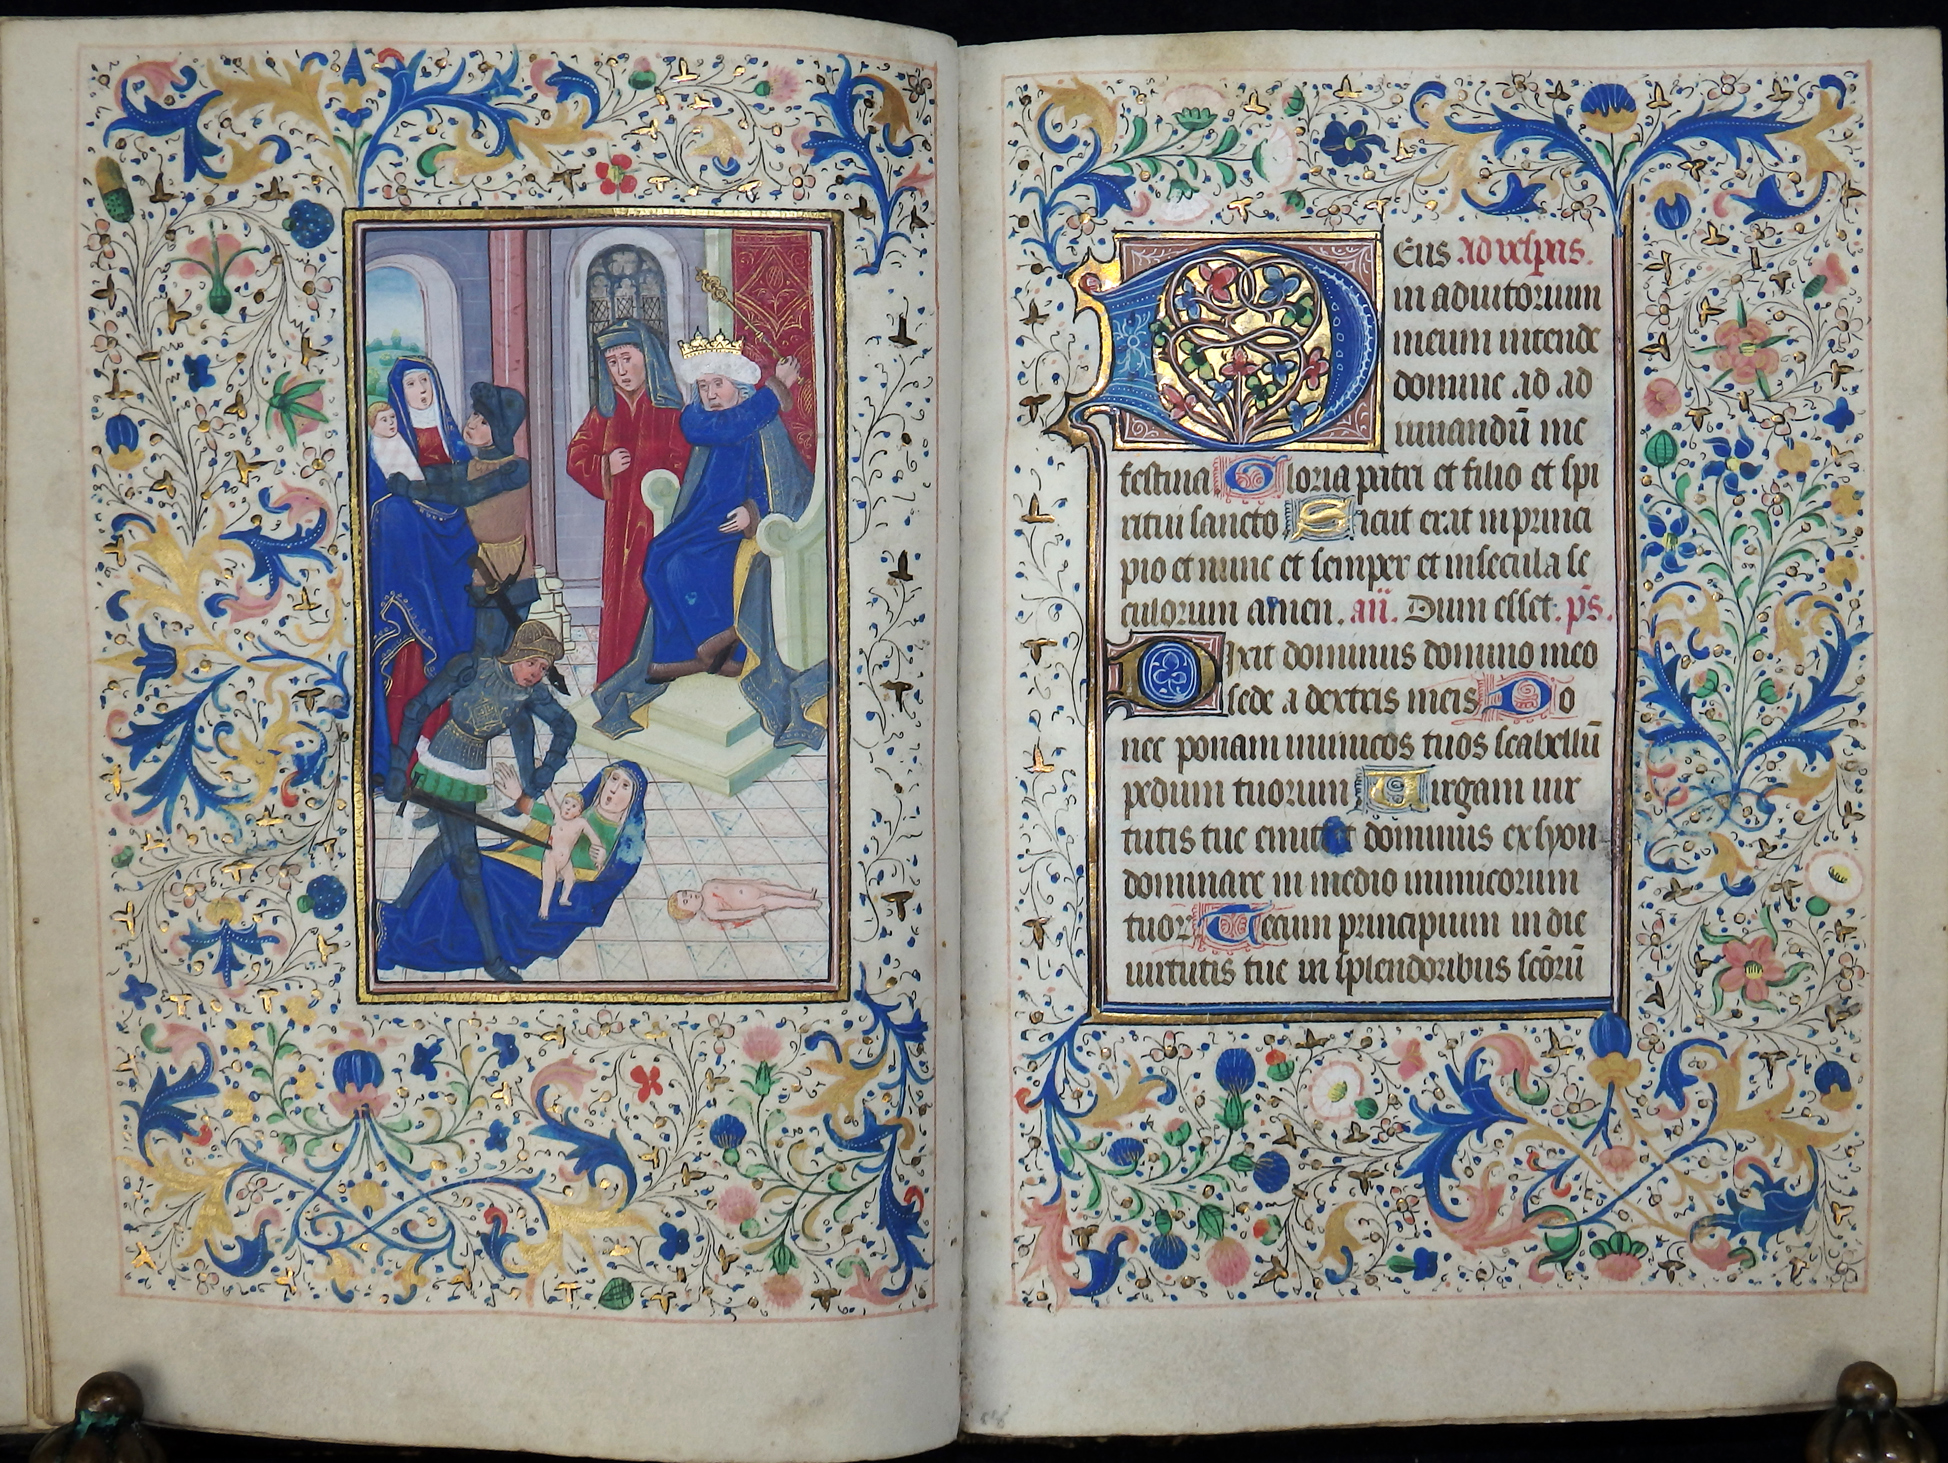 Deus Ad vesp͛as.
in adiutorium
meum intende
domine ad ad
iuuandū me
festina Gloria patri et filio et spi
ritui sancto Sicut erat in princi
pio et nunc et semper et in secula se
culorum amen. añ. Dum esset. p̄s.
Dixit dominus domino meo
sede a dextris meis Do
nec ponam inimicos tuos scabellū
pedum tuorum Uirgam uir
tutis tue emittet dominus ex syon
dominare in medio inimicorum
tuorꝝ Tecum principium in die
uirtutis tue in splendoribus scōrū